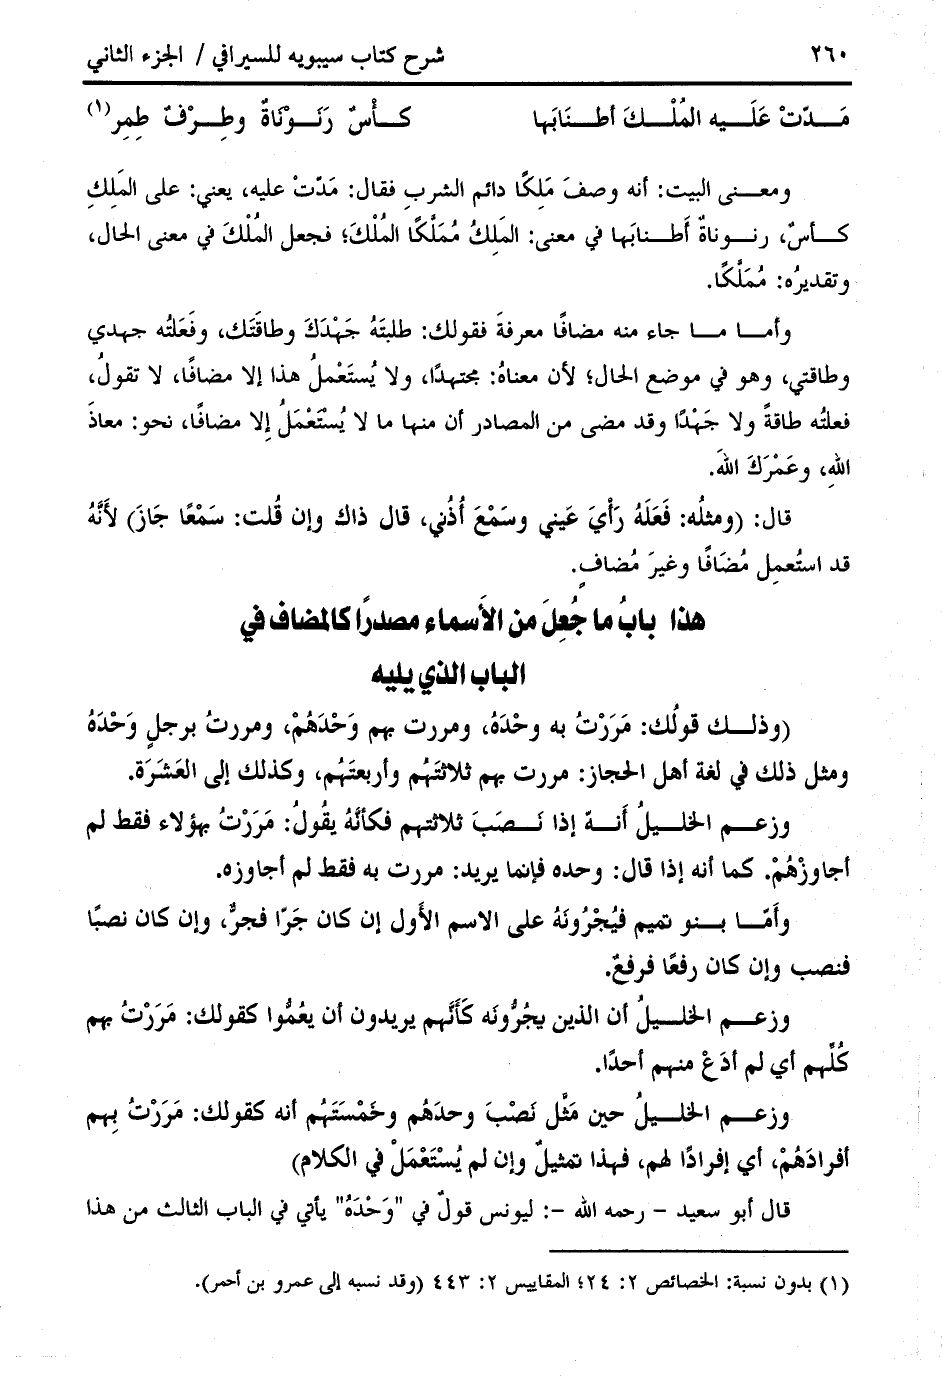 ٢٦٠ شرح كتاب سيبويه للسيرافي / الجزء الثاني
مَدّتْ عَلَيه المُلْكَ أطنَابَها كأْسٌ رَنَوْنَاةٌ وطِرْفٌ طِمر(١)
ومعنى البيت: أنه وصفَ مَلِكًا دائم الشربِ فقال: مَدّتْ عليه، يعني: على المَلِكِ
كأسٌ، رنوناةٌ أَطنابَها في معنى: المَلِكُ مُمَلَّكًا المُلْكَ؛ فجعل المُلْكَ في معنى الحال،
وتقديرُه: مُمَلَّكًا.
وأما ما جاء منه مضافًا معرفةَ فقولك: طلبتَهُ جَهْدَكَ وطاقَتَك، وفَعَلتُه جهدي
وطاقتي، وهو في موضع الحال؛ لأن معناهُ: مجتهدًا، ولا يُستَعْملُ هذا إلا مضافًا، لا تقولُ،
فعلتُه طاقةً ولا جَهْدًا وقد مضى من المصادر أن منها ما لا يُسْتَعْمَلُ إلا مضافًا، نحو: معاذَ
اللهِ، وعَمْرَكَ اللهَ.
قال: (ومثلُه: فَعَلَهُ رَأْيَ عَيني وسَمْعَ أُذُني، قال ذاك وإن قُلت: سَمْعًا جَازَ) لأَنَّهُ
قد استُعمِل مُضَافًا وغيرَ مُضافٍ.
هذا بابُ ما جُعِلَ من الأسماءِ مصدرًا كالمضاف في
الباب الذي يليه
(وذلك قولُك: مَرَرْتُ به وحْدَهُ، ومررت بهم وَحْدَهُمْ، ومررتُ برجلٍ وَحْدَهُ
ومثل ذلك في لغة أهل الحجاز: مررت بهم ثلاثتَهُم وأربعتَهُم، وكذلك إلى العَشَرَة.
وزعم الخليلُ أَنهُ إذا نَصَبَ ثلاثتهم فكأنَّهُ يقُولُ: مَرَرْتُ بهؤلاء فقط لم
أجاوزْهُمْ. كما أنه إذا قال: وحده فإنما يريد: مررت به فقط لم أجاوزه.
وأَمّا بنو تميم فيُجْرُونَهُ على الاسم الأَول إن كان جَرّا فجرٌّ، وإن كان نصبًا
فنصب وإن كان رفعًا فرفعٌ.
وزعم الخليلُ أن الذين يجُرُّونَه كَأَنَّهم يريدون أن يعُمُّوا كقولك: مَرَرْتُ بهم
كُلِّهم أي لم أدَعْ منهم أحدًا.
وزعم الخليلُ حين مَثَّل نَصْبَ وحدَهُم وخَمْسَتَهُم أنه كقولك: مَرَرْتُ بِهم
أفرادَهُمْ، أي إفرادًا لهم، فهذا تمثيلٌ وإن لم يُسْتَعْمَلْ في الكلام)
قال أبو سعيد - رحمه الله -: ليونس قولٌ في "وَحْدَهُ" يأتي في الباب الثالث من هذا
(١) بدون نسبة: الخصائص ٢: ٢٤؛ المقاييس ٢: ٤٤٣ (وقد نسبه إلى عمرو بن أحمر).